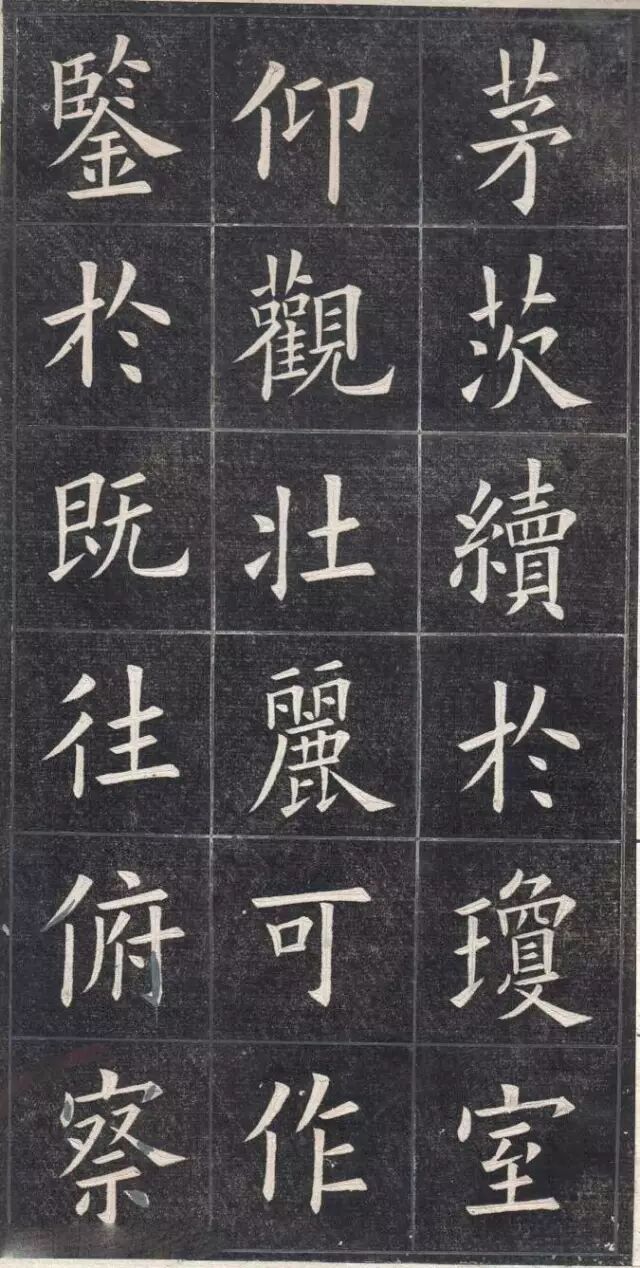 茅茨續於瓊室
仰觀壯麗可作
鍳於既往俯察